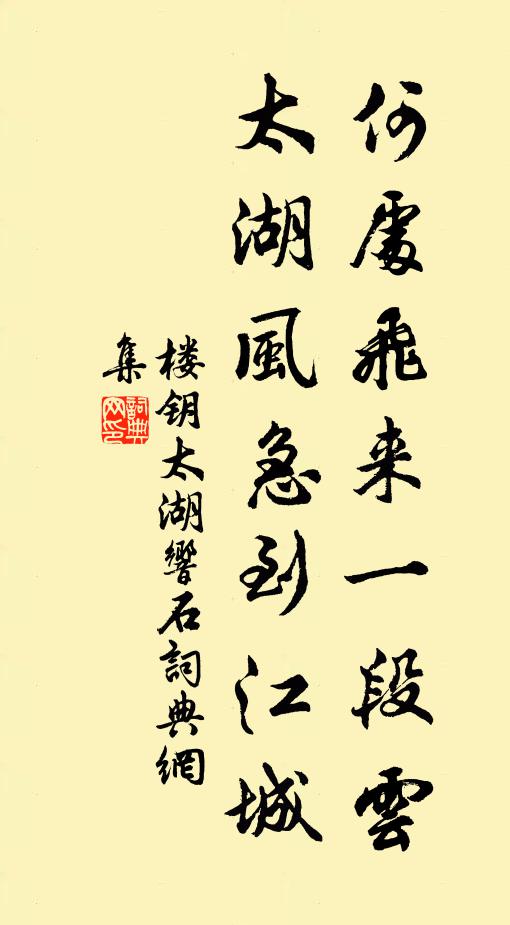 何處飛来一段雲
太湖風急到江城
楼钥太湖響石詞典網
集
詞典網印